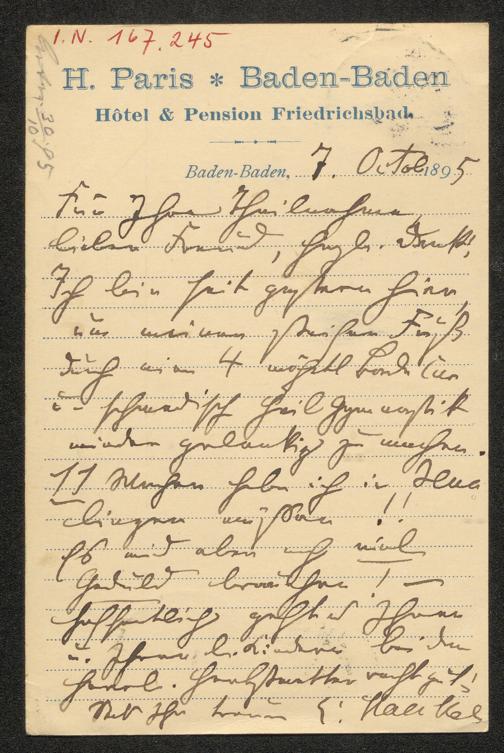 I.N. 167.245
H. Paris * Baden-Baden
Hôtel & Pension Friedrichsbad.
Baden-Baden, 7. Octob 1895
Für Ihre Theilnahme,
lieber Freund, herzl. Dank!
Ich bin seit gestern hier,
um meinen steifen Fuß
durch eine 4 wöchtl Badekur
u. schwedisch Heilgymnastik
wieder gelenkig zu machen.
11 Wochen habe ich in Jena
liegen müssen!!
Es wird aber noch viel
Geduld brauchen! —
Hoffentlich geht es Ihnen
u. Ihren l. Kindern bei dem
herrl. Herbstwetter recht gut!
Stets Ihr treuer E. Haeckel